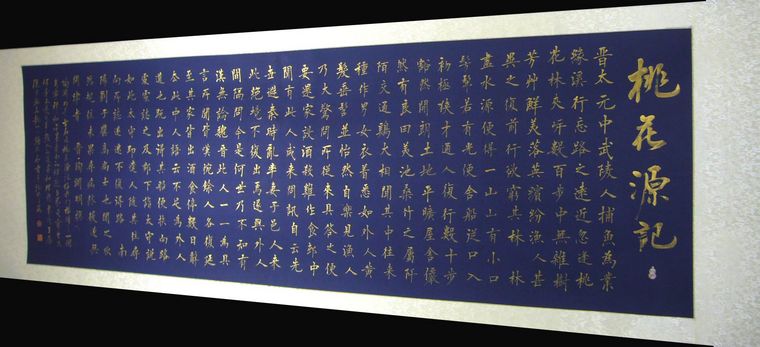 桃花源記
晋太元中武陵人捕魚為業
緣溪行忘路之遠近忽逢桃
花林夾岸數百步中無雜樹
芳艸鮮美落英繽紛漁人甚
異之復前行欲窮其林林
盡水源便得一山山有小口
髣髴若有光便舍船從口入
初極狹才通人復行數十步
豁然開朗土地平曠屋舍儼
然有良田美池桑竹之屬阡
陌交通鷄犬相聞其中往來
種作男女衣著悉如外人黃
髮垂髫並怡然自樂見漁人
乃大驚問所從來具答之便
要還家設酒殺雞作食邨中
聞有此人咸來問訊自云先
世避秦時亂率妻子邑人來
此絕境不復出焉遂與外人
間隔問今是何世乃不知有
漢無論魏晉此人一一為具
言所聞皆嘆惋餘人各復延
至其家皆出酒食停數日辭
去此中人語云不足為外人
道也既出得其船便扶向路
處處誌之及郡下詣太守說
如此太守即遣人隨其往尋
向所誌遂迷不復得路 南
陽劉子驥高尚士也聞之欣
然規往未果尋病終後遂無
問津者 晉陶淵明撰